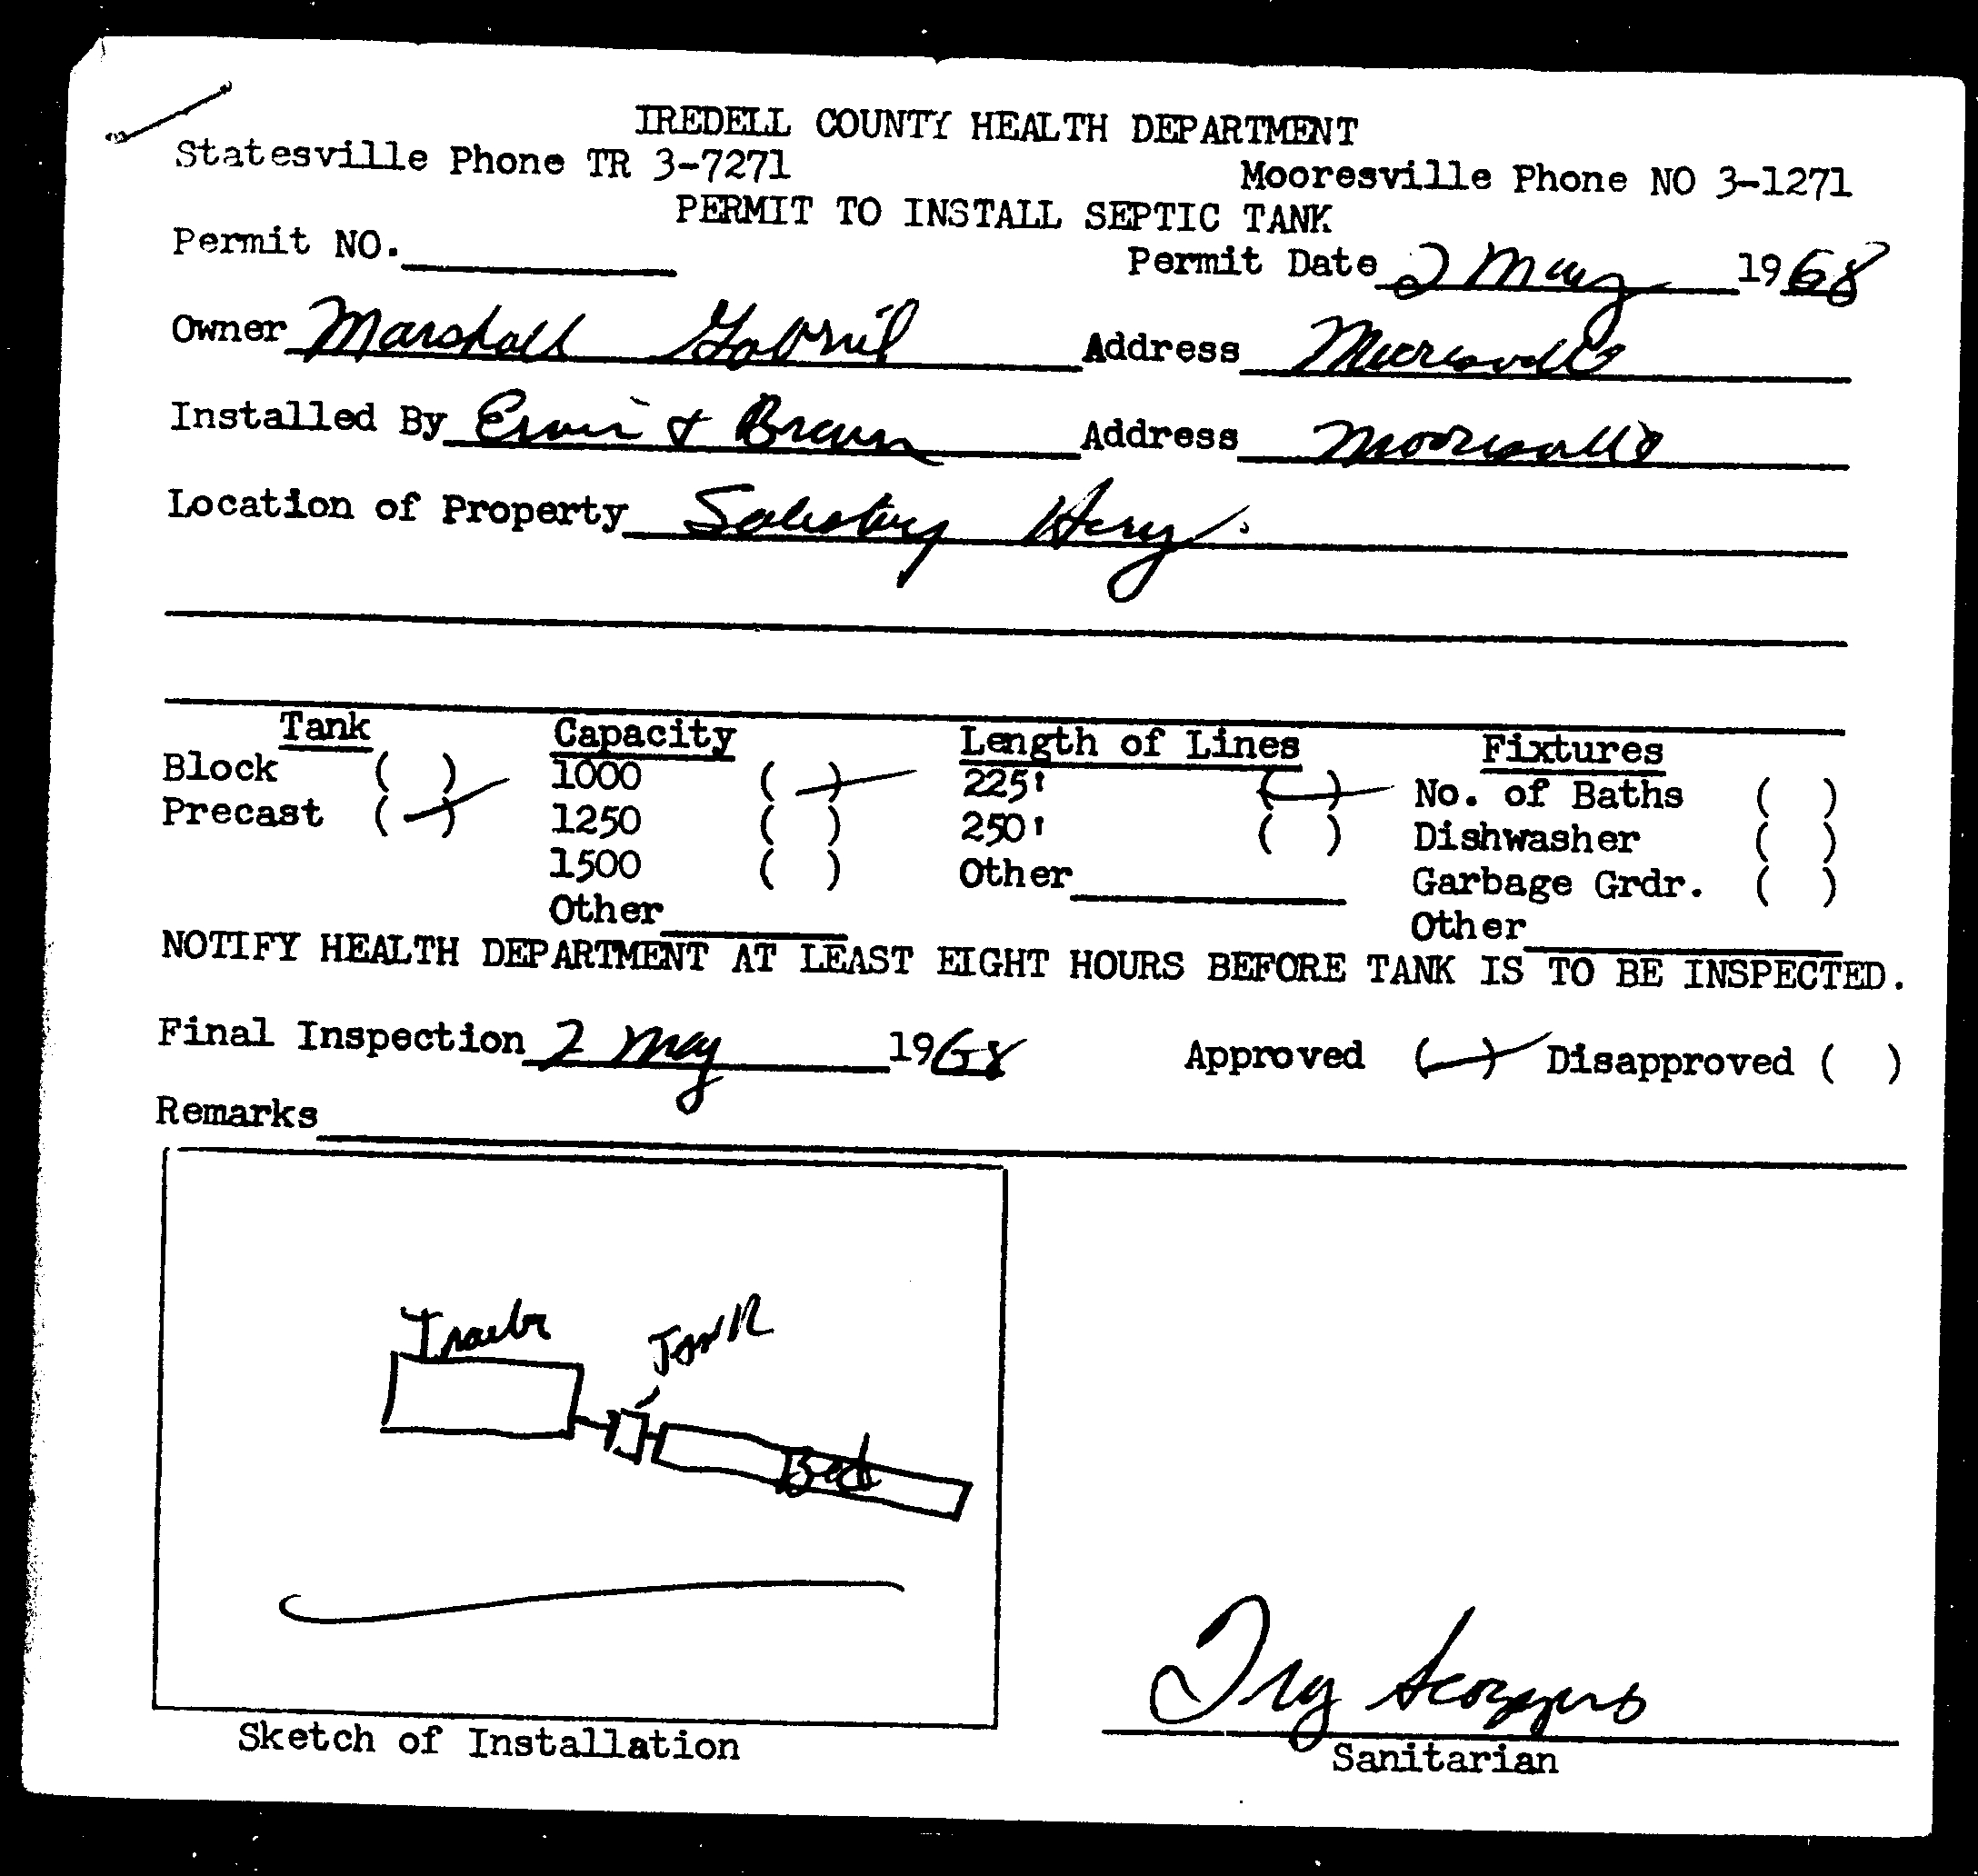 IREDELL COUNTY HEALTH DEPARTMENT
Statesville Phone TR 3-7271 Mooresville Phone NO 3-1271
PERMIT TO INSTALL SEPTIC TANK
Permit NO. Permit Date 2 May 1968
Owner Marshall Gabriel Address Mooresville
Installed By Ervin & Brown Address Mooresville
Location of Property Salisbury Hwy.
Tank Capacity Length of Lines Fixtures
Block ( ) 1000 (✓) 225' (✓) No. of Baths ( )
Precast (✓) 1250 ( ) 250' ( ) Dishwasher ( )
1500 ( ) Other Garbage Grdr. ( )
Other Other
NOTIFY HEALTH DEPARTMENT AT LEAST EIGHT HOURS BEFORE TANK IS TO BE INSPECTED.
Final Inspection 2 May 1968 Approved (✓) Disapproved ( )
Remarks
Tank
Bed
Sketch of Installation
Sanitarian